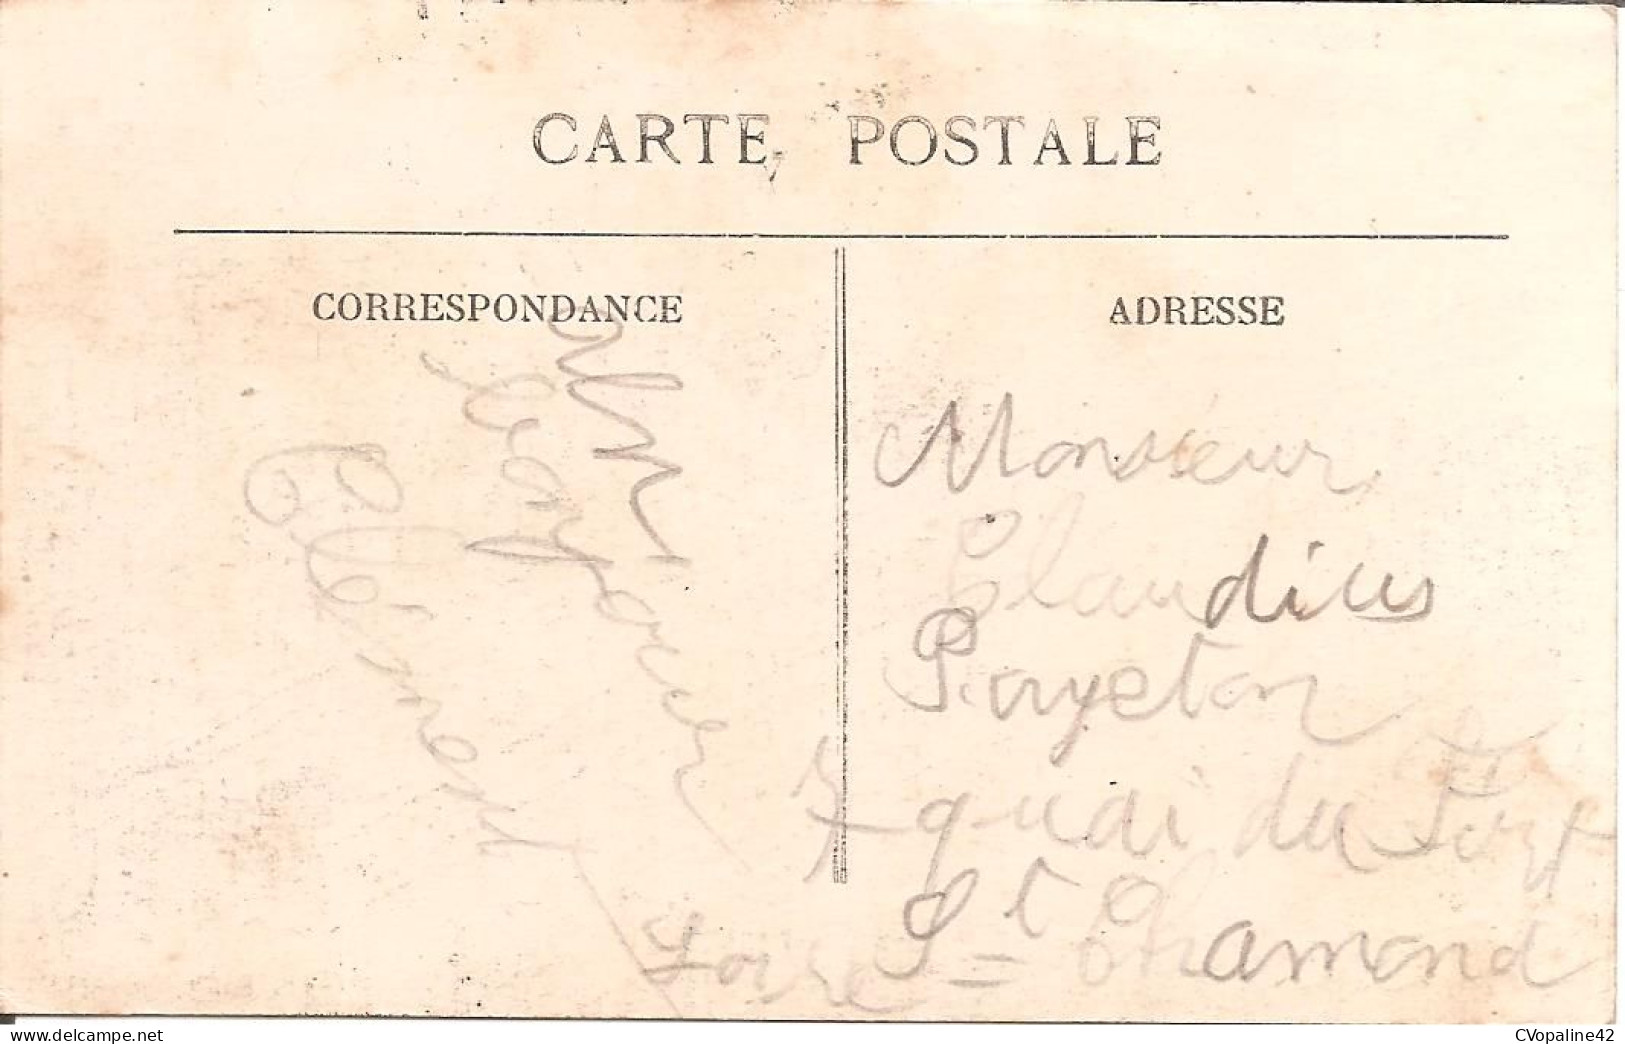 CARTE POSTALE
CORRESPONDANCE
ADRESSE
Clément
Monsieur
Claudius
Poyeton
7 quai du Fort
St = Chamond
Loire
delcampe.net
CVopaline42